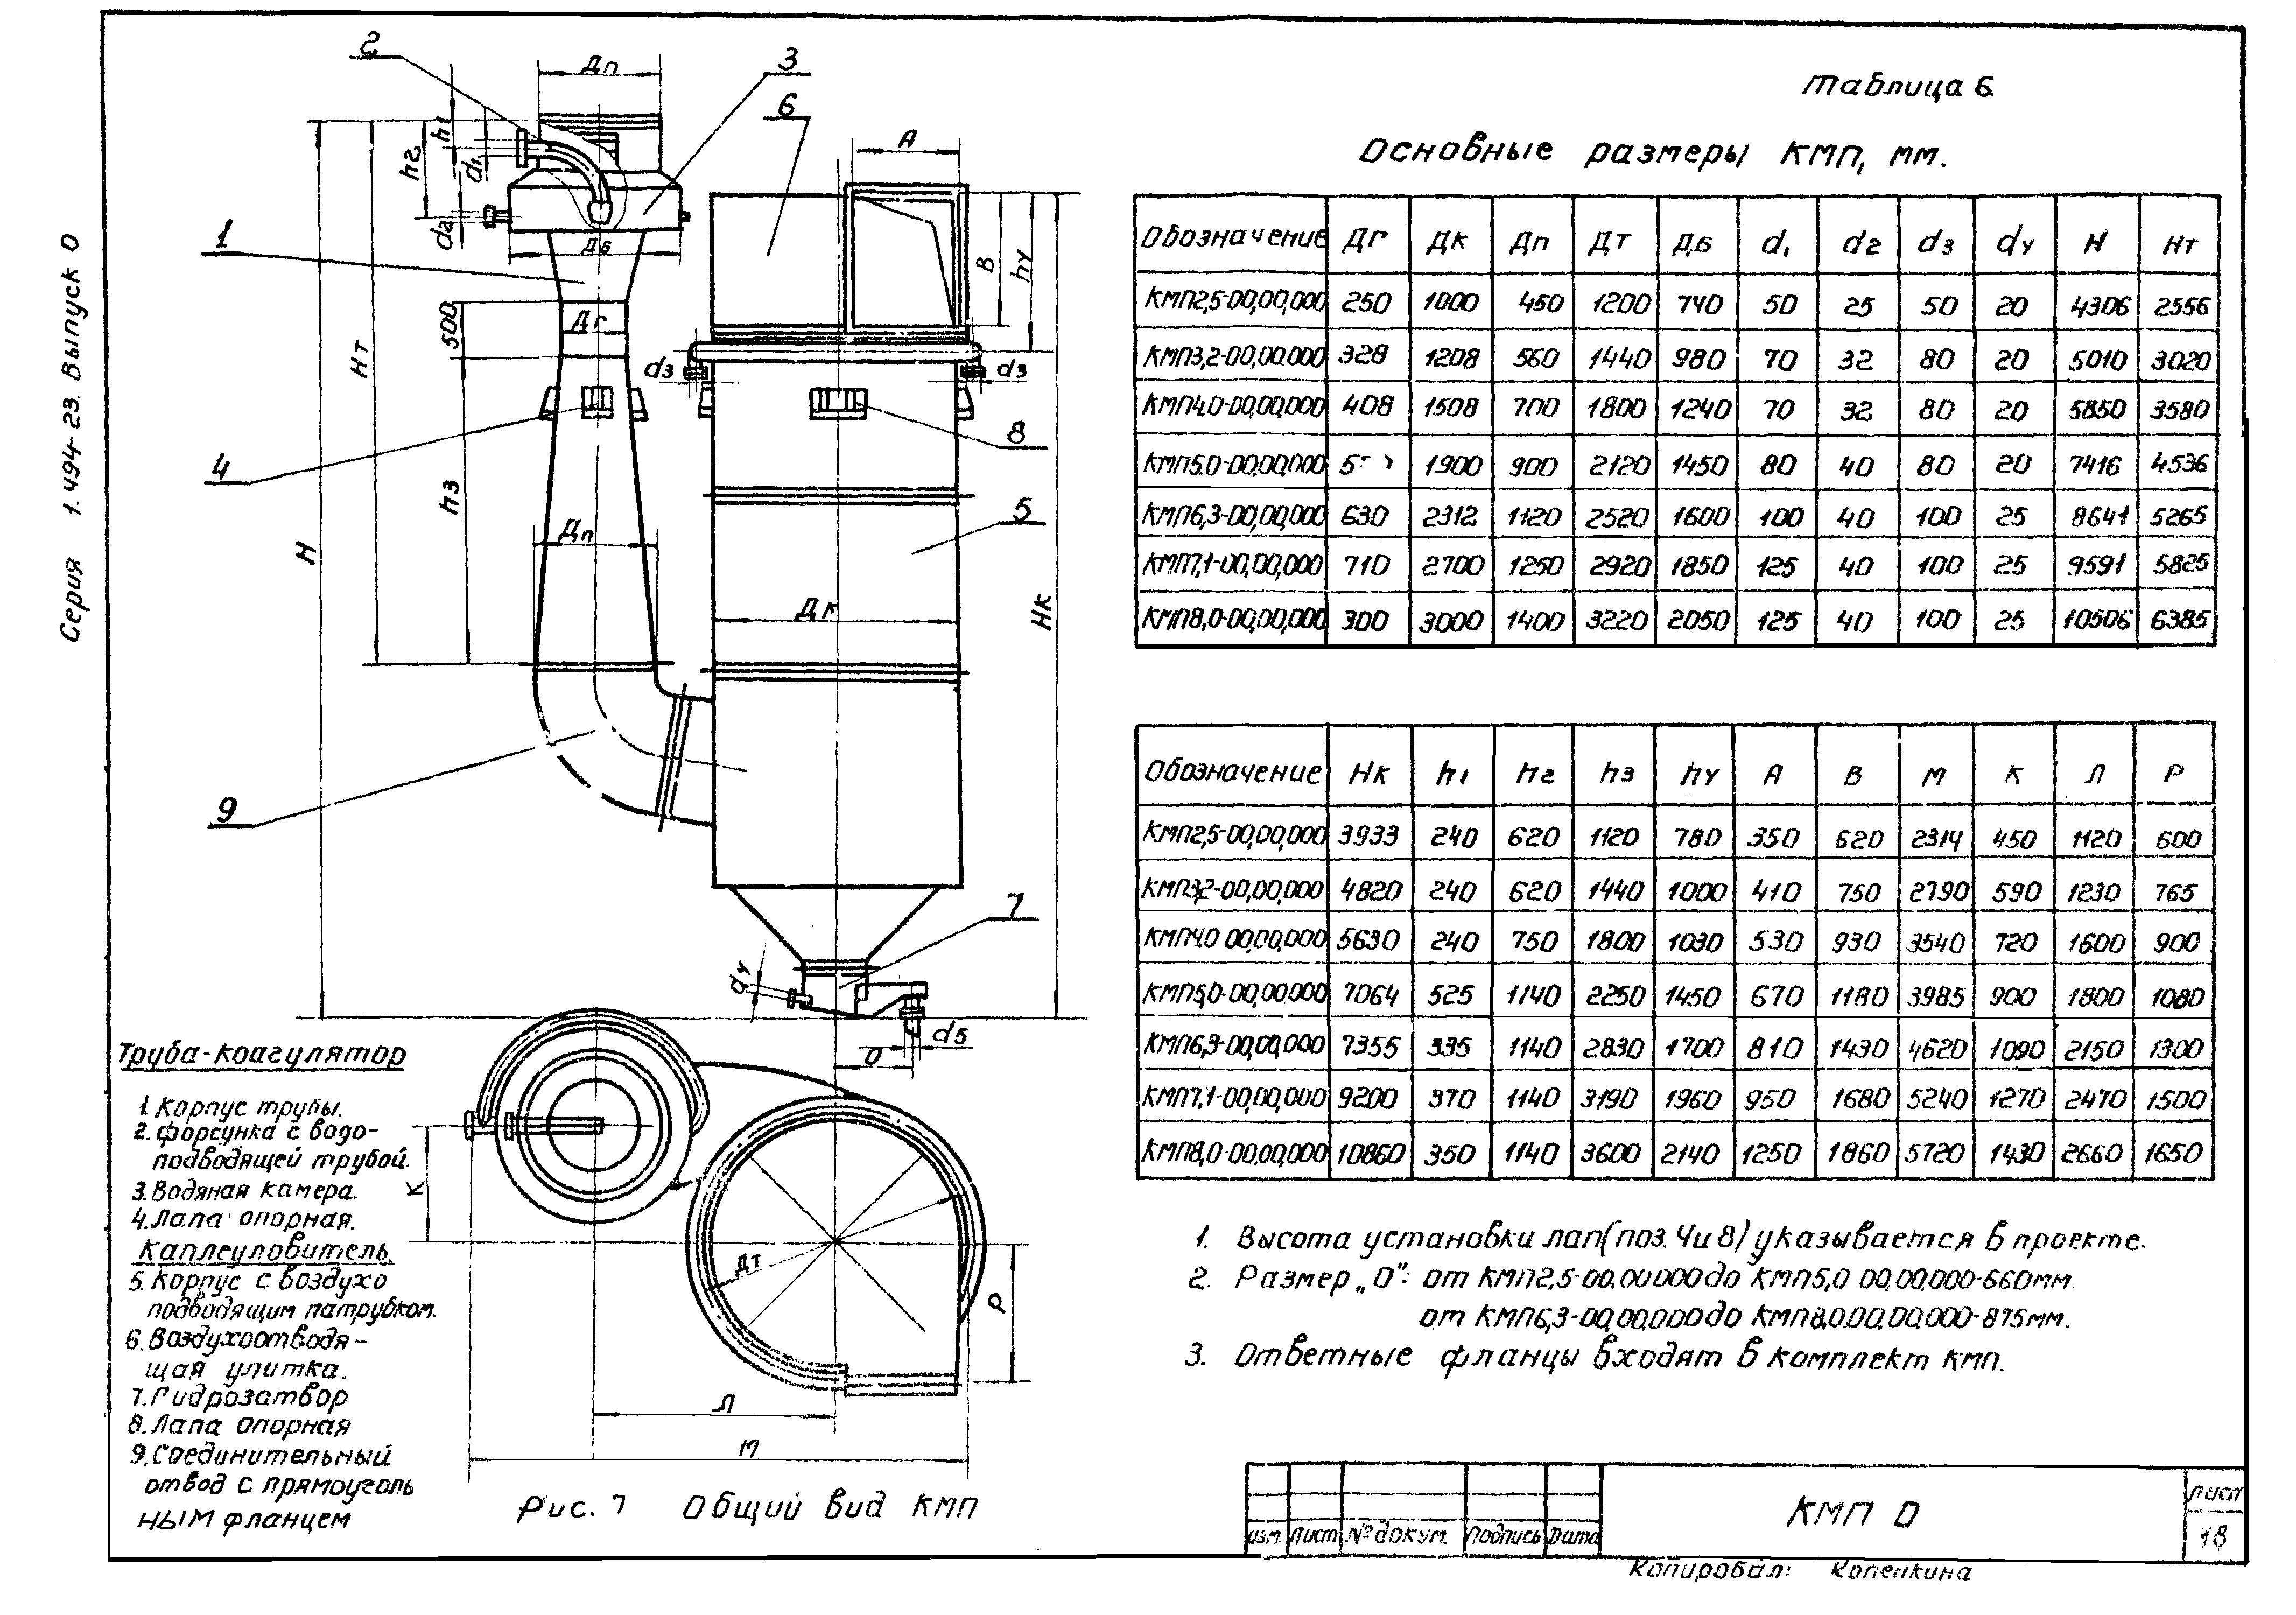 Серия 1.494-23. Выпуск 0
2
Дп
3
6
А
h1
h2
d1
d2
1
Дб
В
hу
500
Дг
Нт
d3
d3
8
4
h3
5
Н
Дп
Дк
Нк
9
7
dу
d5
О
К
Дт
Р
Л
М
Труба-коагулятор
1. Корпус трубы.
2. Форсунка с водо-
подводящей трубой.
3. Водяная камера.
4. Лапа опорная.
Каплеуловитель.
5. Корпус с воздухо
подводящим патрубком.
6. Воздухоотводя-
щая улитка.
7. Гидрозатвор
8. Лапа опорная
9. Соединительный
отвод с прямоуголь
ным фланцем
Рис. 7 Общий вид КМП
Таблица 6
Основные размеры КМП, мм.
Обозначение Дг Дк Дп Дт Дб d1 d2 d3 dу Н Нт
КМП2,5-00,00,000 250 1000 450 1200 740 50 25 50 20 4306 2556
КМП3,2-00,00.000 328 1208 560 1440 980 70 32 80 20 5010 3020
КМП4.0-00,00,000 408 1508 700 1800 1240 70 32 80 20 5850 3580
КМП5.0-00,00,000 1900 900 2120 1450 80 40 80 20 7416 4536
КМП6,3-00,00,000 630 2312 1120 2520 1600 100 40 100 25 8641 5265
КМП7,1-00,00,000 710 2700 1250 2920 1850 125 40 100 25 9591 5825
КМП8,0-00,00,000 300 3000 1400 3220 2050 125 40 100 25 10506 6385
Обозначение Нк h1 h2 h3 hу А В М К Л Р
КМП2,5-00,00,000 3933 240 620 1120 780 350 620 2314 450 1120 600
КМП3,2-00,00,000 4820 240 620 1440 1000 410 750 2790 590 1230 765
КМП4.0 00,00,000 5630 240 750 1800 1030 530 930 3540 720 1600 900
КМП5,0-00,00,000 7064 525 1140 2250 1450 670 1180 3985 900 1800 1080
КМП6,3-00,00,000 7355 335 1140 2830 1700 810 1430 4620 1090 2150 1300
КМП7,1-00,00,000 9200 370 1140 3190 1960 950 1680 5240 1270 2470 1500
КМП8,0-00.00,000 10860 350 1140 3600 2140 1250 1860 5720 1430 2660 1650
1. Высота установки лап (поз. 4 и 8) указывается в проекте.
2. Размер „О": от КМП2,5-00,00 000 до КМП5,0 00,00,000-660мм.
от КМП6,3-00,00,000 до КМП8,0.00,00,000-875мм.
3. Ответные фланцы входят в комплект КМП.
Изм. Лист № докум. Подпись Дата
КМП 0
Лист
18
Копировал: Копенкина